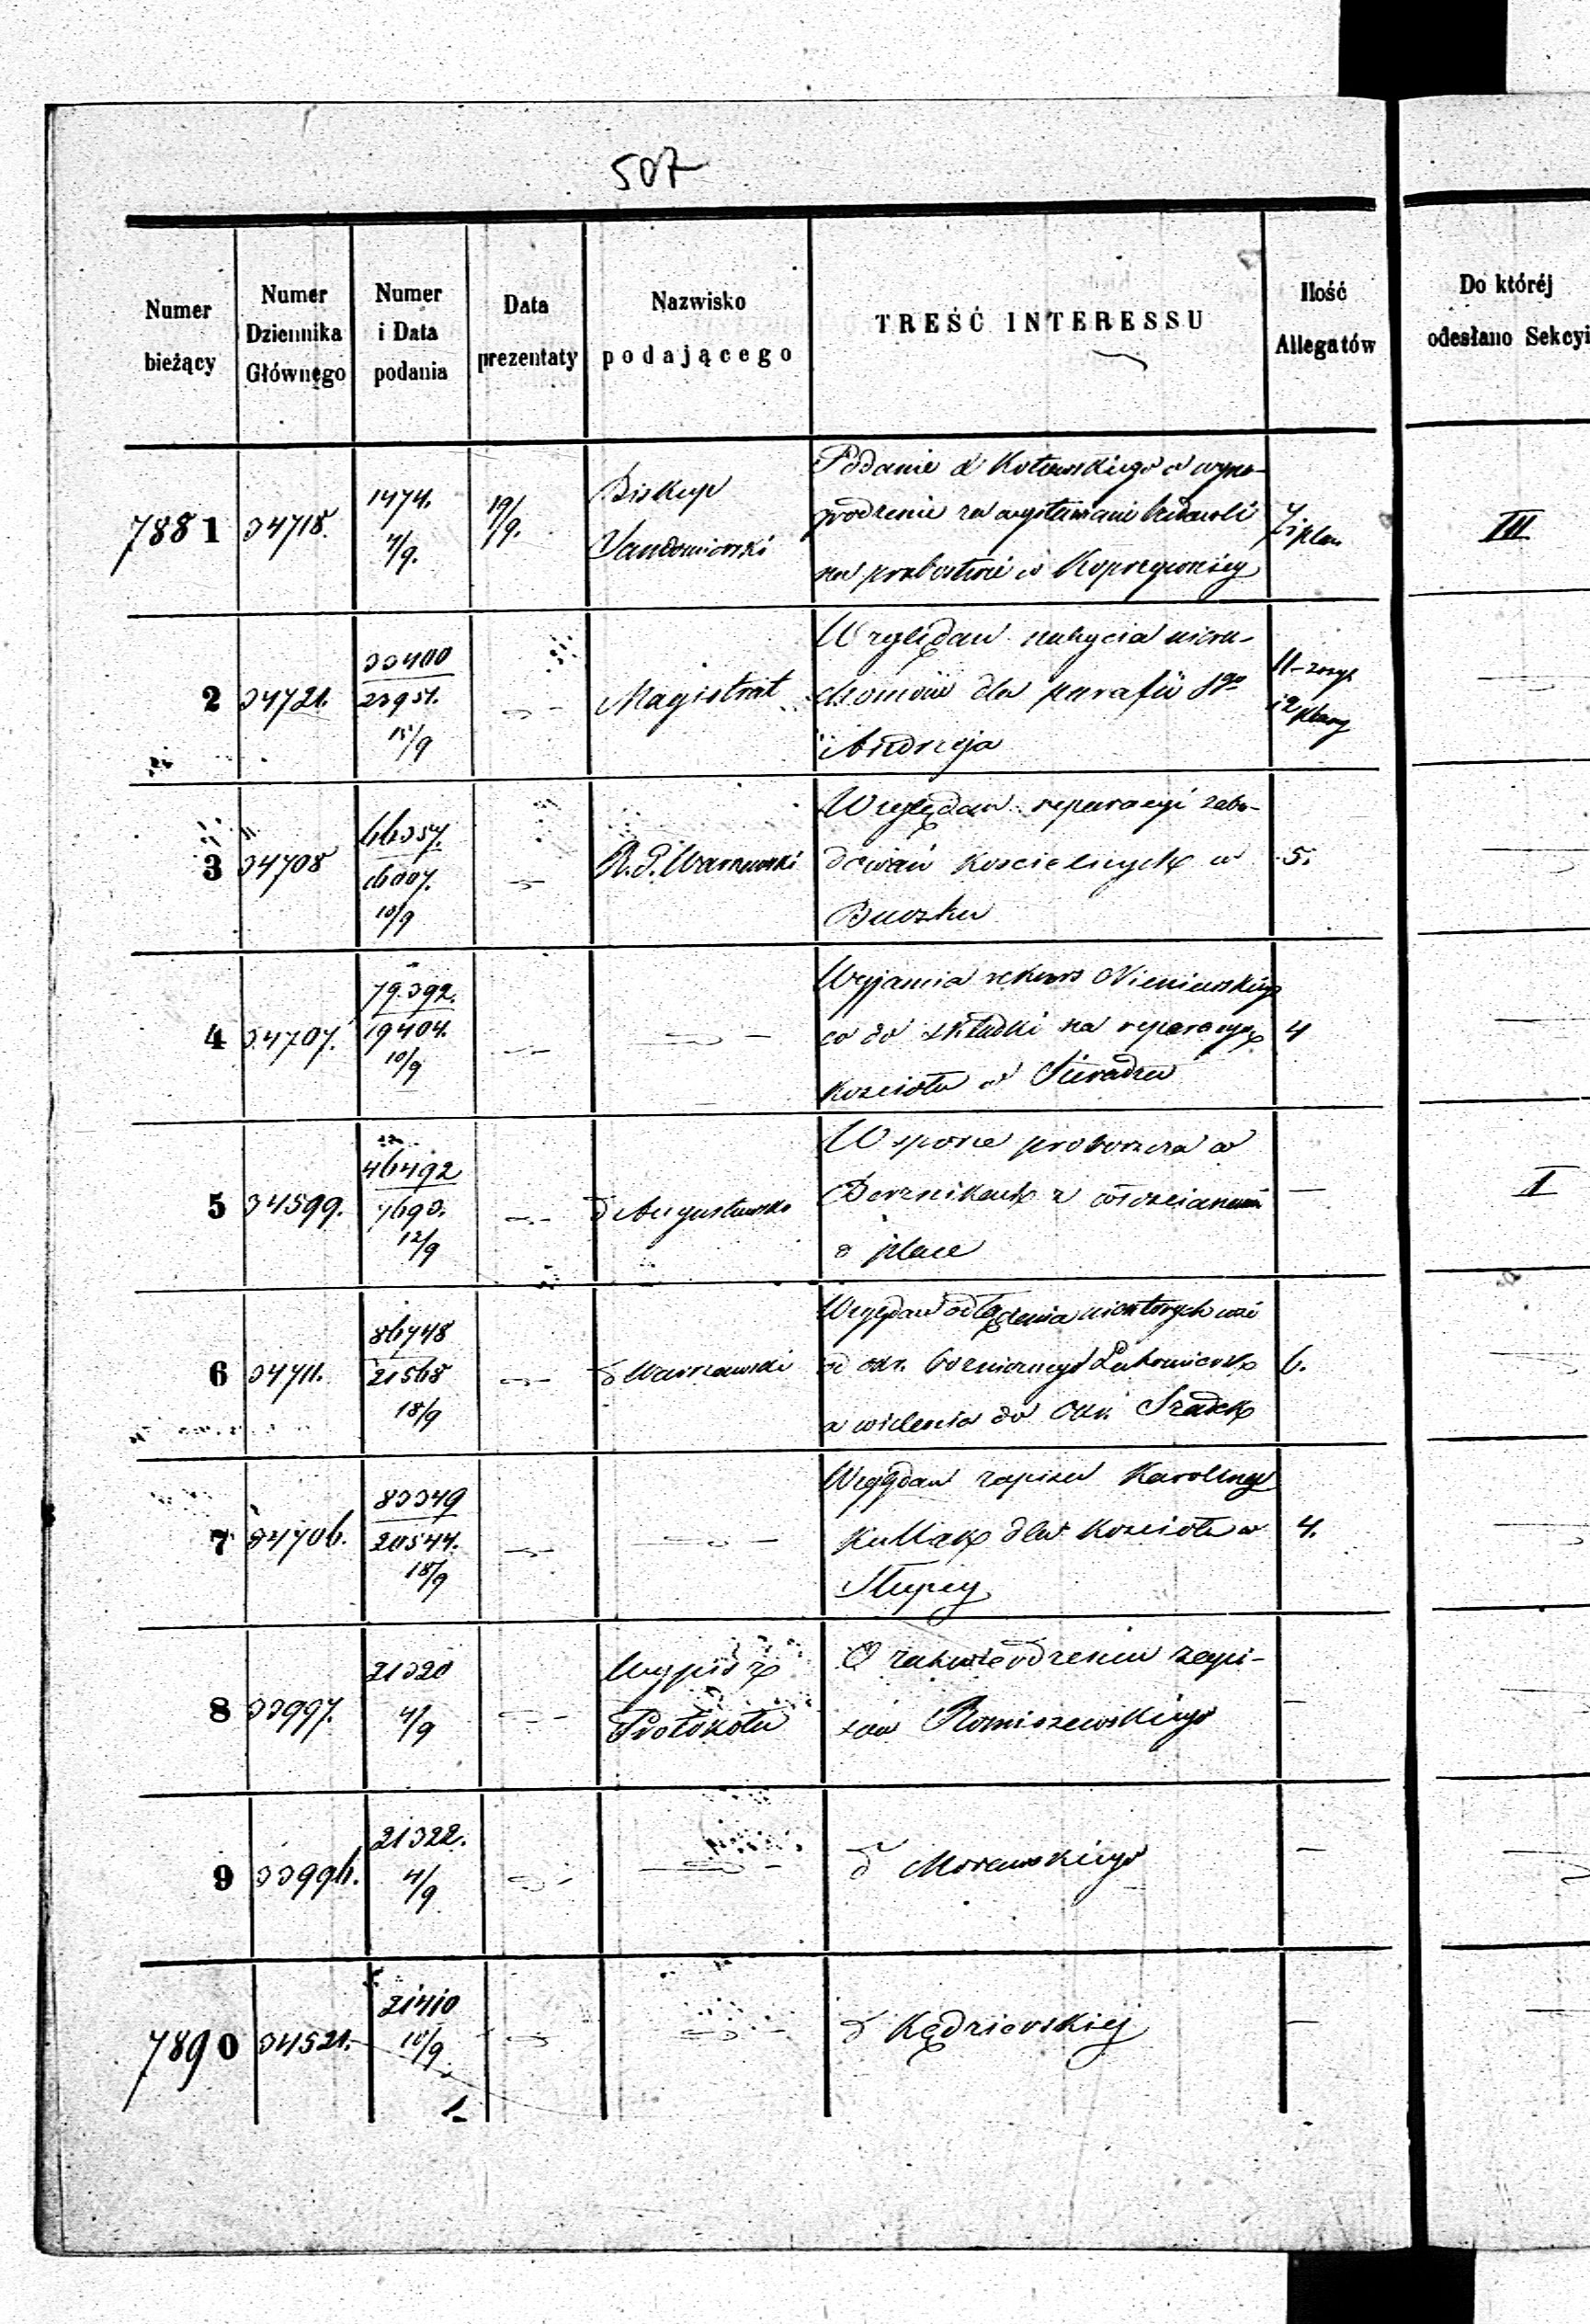 507
Numer bieżący
Numer Dziennika Głównego
Numer i Data podania
Data prezentaty
Nazwisko podającego
TREŚĆ INTERESSU
Ilość Allegatów
Do któréj odesłano Sekcyi
7881 34718. 1474. 4/9. 19/9. Biskup Sandomierski
Podanie X Kotowskiego o wyna-
grodzenie za wystawienie budowli
na probostwie w Koprzywnicy
7 i plan III
2 34721. 33400 23951. 15/9 Magistrat
Względem nabycia nieru-
chomości dla parafii Sgo
Andrzeja
11 zeszyt i 2 plany
3 34708 66357. 16007. 10/9 R. G. Warszawski
Względem reparacyi zabu-
dowań kościelnych w
Buczku
5.
4 34707. 79392. 19404. 10/9
Wyjaśnia rekurs Nieniewskiego
co do składki na reparacyę
kościoła w Sieradzu
4
5 34599. 46492 7693. 12/9 d Augustowski
W sporze proboszcza w
Berżnikach z włościanami
o place
— I
6 34711. 86748 21568 18/9 d Warszawski
Względem odłączenia niektórych wsi
od okr. bożniczego Lutomiersk
a wcielenia do okr. Szadek
6.
7 34706. 83349 20544. 18/9
Względem zapisu Karoliny
Kullak dla kościoła w
Słupcy
4.
8 33997. 21320 4/9 Wypis z Protokołu
O zatwierdzeniu zapi-
sów Romiszewskiego
—
9 33996. 21322. 4/9
d Morawskiego
—
7890 34521. 21410 10/9
d Kędzierskiej
—